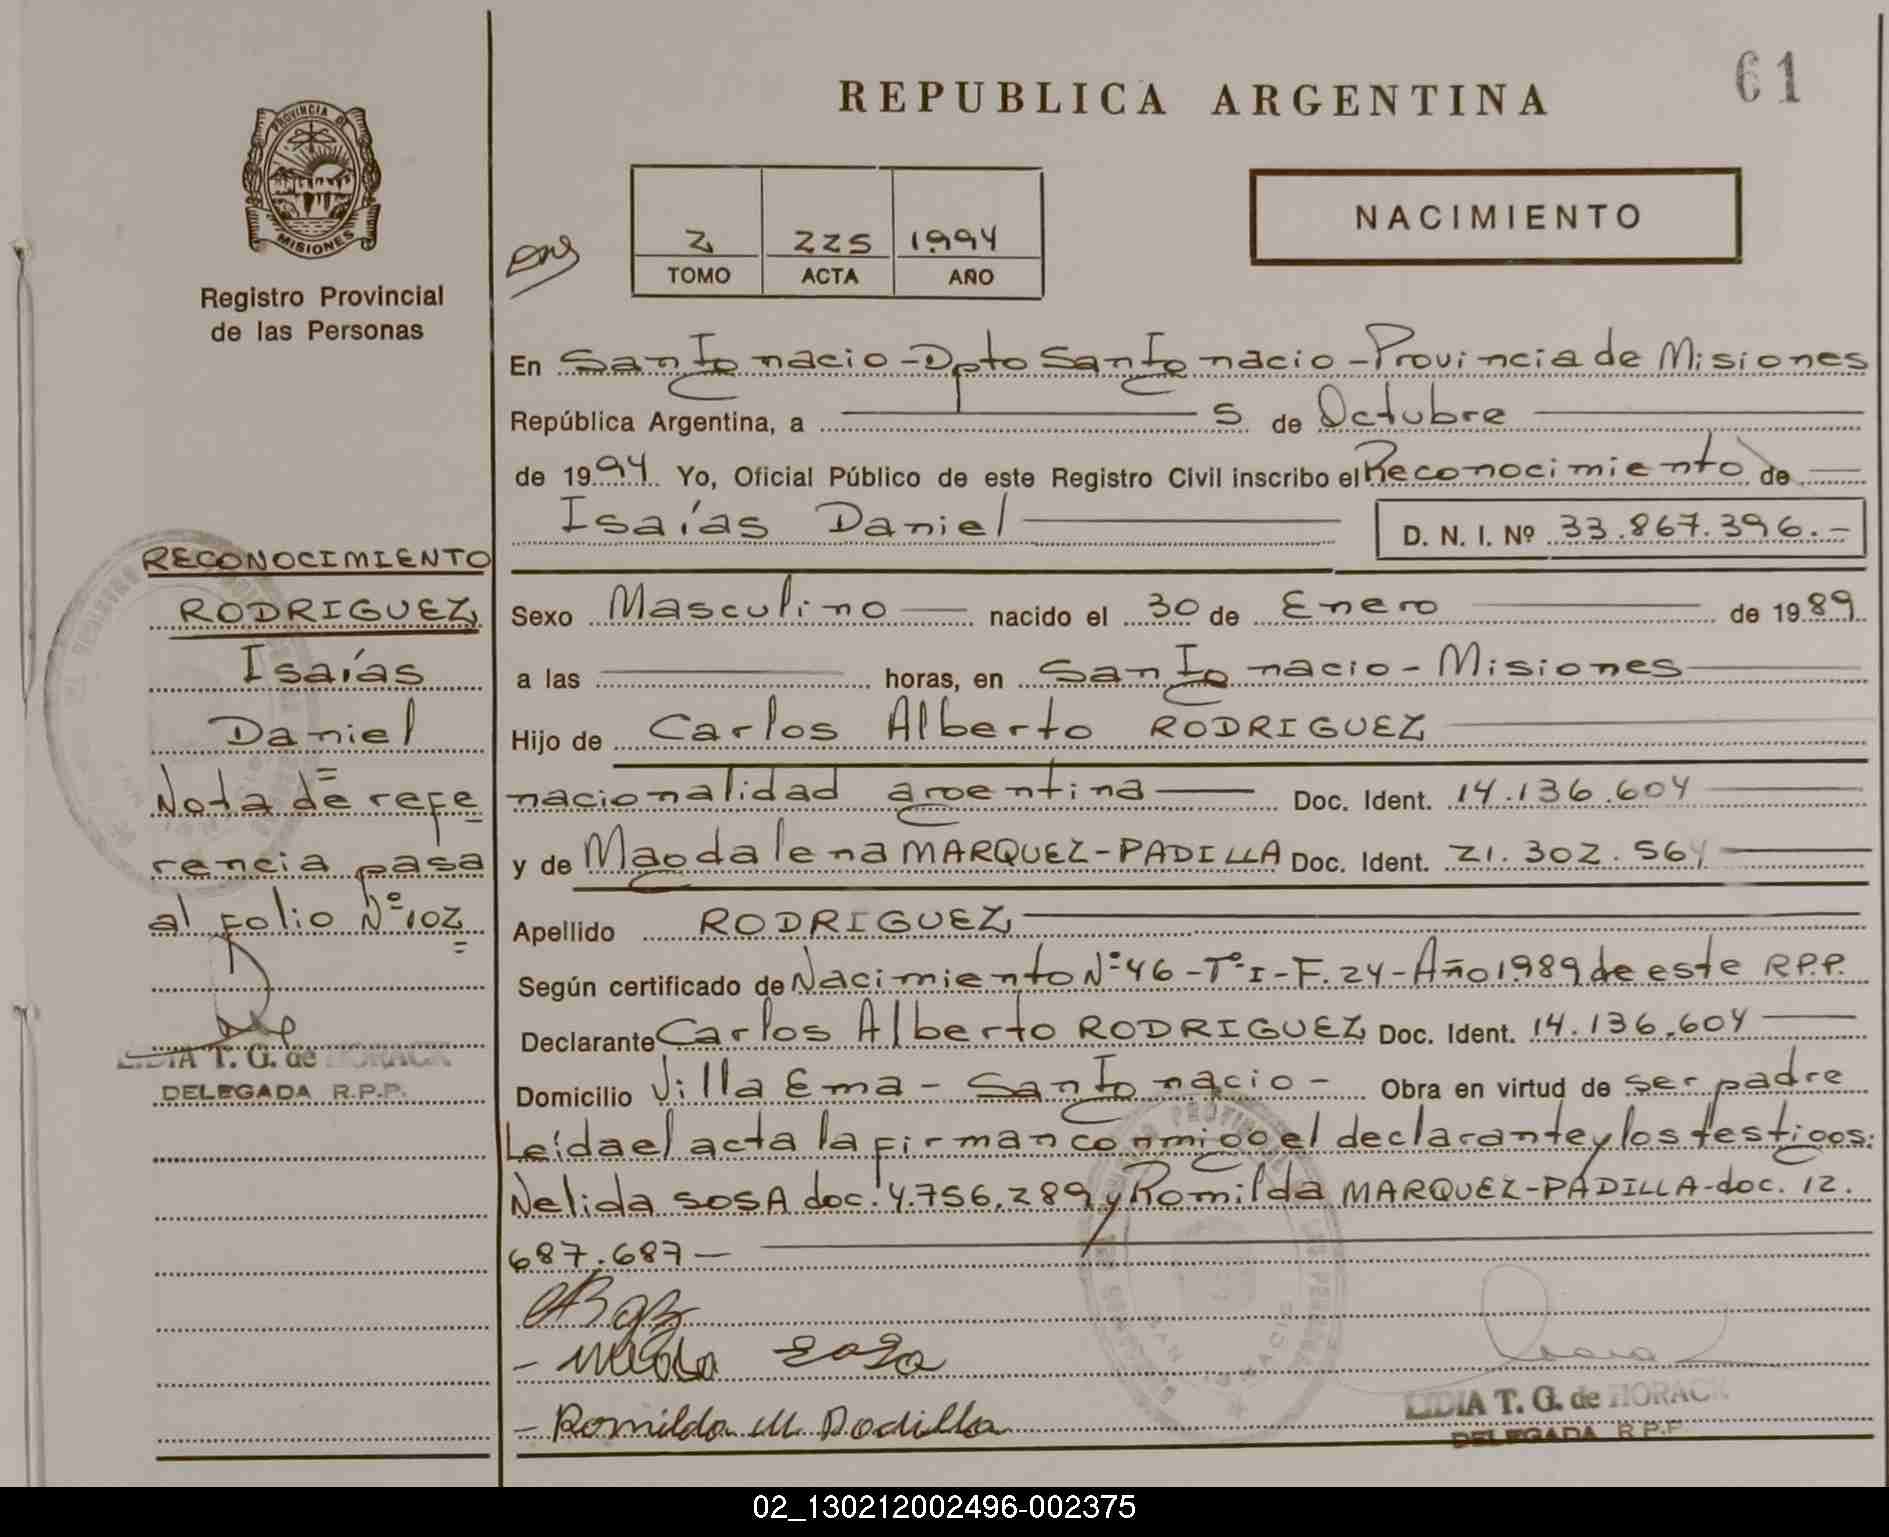 61
REPUBLICA ARGENTINA
PROVINCIA DE
MISIONES
Registro Provincial
de las Personas
2 225 1994
TOMO ACTA AÑO
NACIMIENTO
En San Ignacio - Dpto San Ignacio - Provincia de Misiones
República Argentina, a 5 de Octubre
de 1994 Yo, Oficial Público de este Registro Civil inscribo el Reconocimiento de
Isaías Daniel D. N. I. Nº 33.867.396.-
Sexo Masculino nacido el 30 de Enero de 1989
a las horas, en San Ignacio - Misiones
Hijo de Carlos Alberto RODRIGUEZ
nacionalidad argentina Doc. Ident. 14.136.604
y de Magdalena MARQUEZ-PADILLA Doc. Ident. 21.302.564
Apellido RODRIGUEZ
Según certificado de Nacimiento Nº 46 - Tº I - F. 24 - Año 1989 de este R.P.P.
Declarante Carlos Alberto RODRIGUEZ Doc. Ident. 14.136.604
Domicilio Villa Ema - San Ignacio - Obra en virtud de ser padre
Leída el acta la firman conmigo el declarante y los testigos:
Nelida SOSA doc. 4.756.289 y Romilda MARQUEZ-PADILLA - doc. 12.
687.687 -
- Nelida Sosa
- Romilda M Padilla
LIDIA T. G. de HORACK
DELEGADA R.P.P.
RECONOCIMIENTO
RODRIGUEZ
Isaías
Daniel
Nota de refe
rencia pasa
al folio Nº 102
LIDIA T. G. de HORACK
DELEGADA R.P.P.
02_130212002496-002375